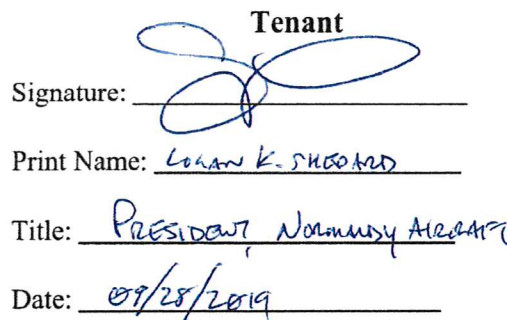 Tenant
Signature:
Print Name: LOGAN K. SHEPARD
Title: PRESIDENT, NORMANDY AIRCRAFT
Date: 09/28/2019